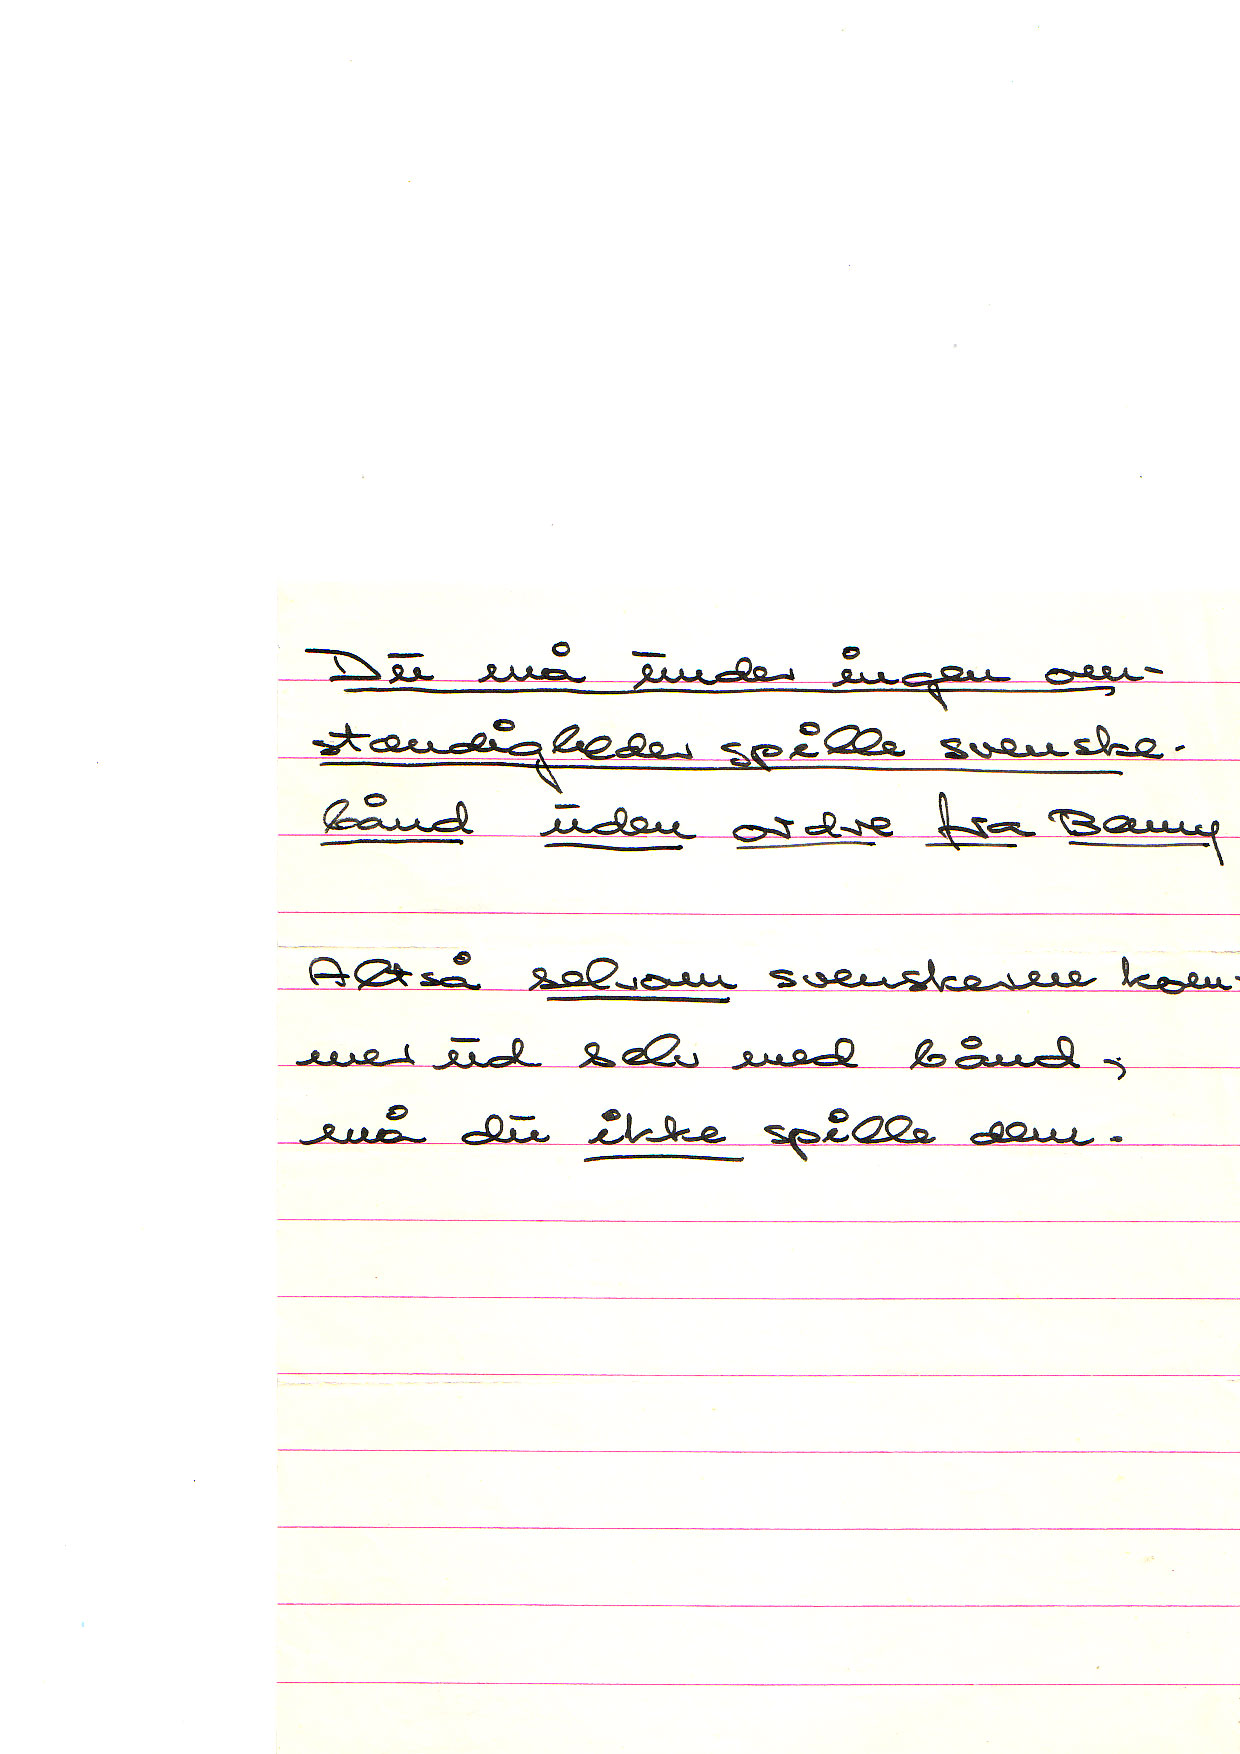 Du må under ingen om-
stændigheder spille svenske-
bånd uden ordre fra Benny
Altså selvom svenskerne kom-
mer ud selv med bånd,
må du ikke spille dem.